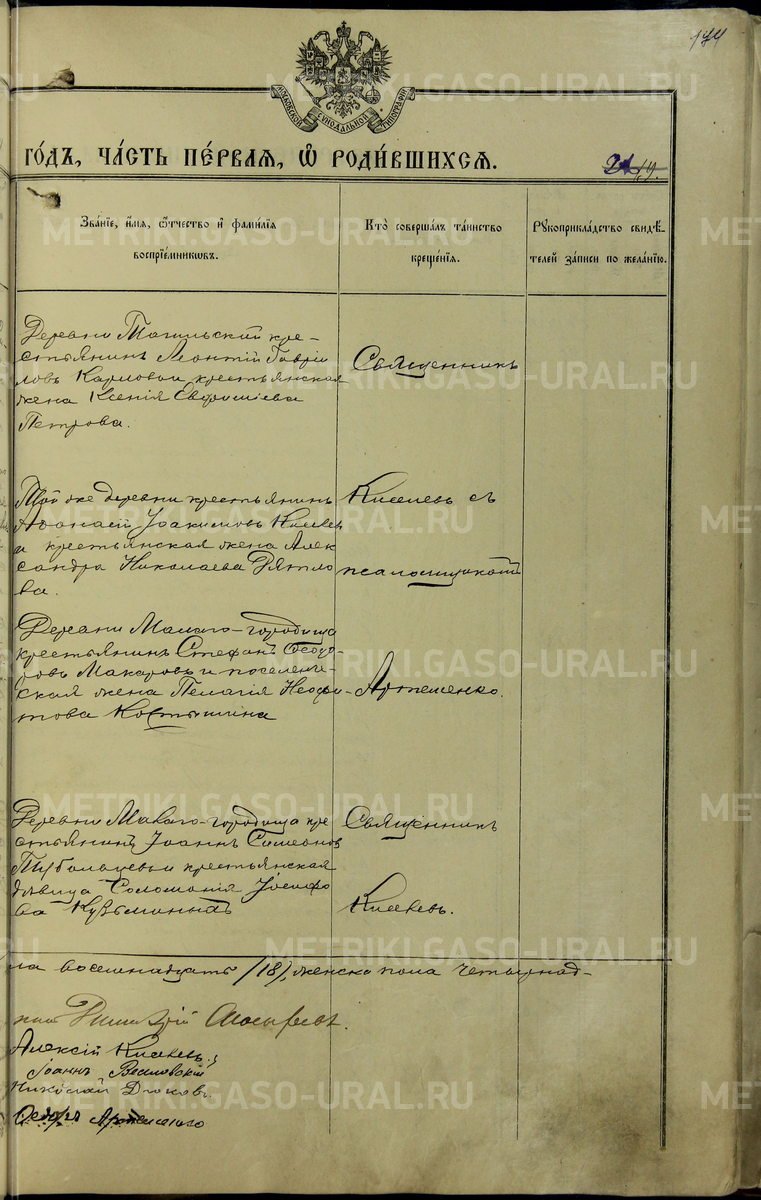 174
МОСКОВСКОЙ СѴНОДАЛЬНОЙ ТИПОГРАФІИ
ГО́ДЪ, ЧА́СТЬ ПЕ́РВАЯ, Ѡ РОДИ́ВШИХСЯ.
Зва́нїе, и́мя, ѻ́тчество и҆ фами́лїя
воспрїе́мникѡвъ.
Кто̀ соверша́лъ та́инство
креще́нїя.
Рꙋкоприкла́дство свидѣ́-
телей за́писи по жела́нїю.
Деревни Тагильский кре-
стьянинъ Леонтій Гаврі
ловъ Карловъ и крестьянская
жена Ксенія
Петрова.
Священникъ
Той же деревни крестьянинъ
Афанасій Іоакимовъ Киселевъ
и крестьянская жена Алек
сандра Николаева Дятло
ва.
Киселевъ съ
псаломщикомъ
Деревни Малаго-городища
крестьянинъ Стефанъ Ѳеодо-
ровъ Макаровъ и поселенче-
ская жена Пелагія Неофи-
това Костылина
Артеменко.
Деревни Малаго-городища кре
стьянинъ Іоаннъ Симеоновъ
и крестьянская
дѣвица Соломонія Іосифо
ва Кузьминыхъ
Священникъ
Киселевъ.
ла восемнадцать /18/, женска пола четырнад-
Димитрій
Алексій Киселевъ.
Іоаннъ
Николай Дюковъ.
Ѳедоръ Артеменко
METRIKI.GASO-URAL.RU